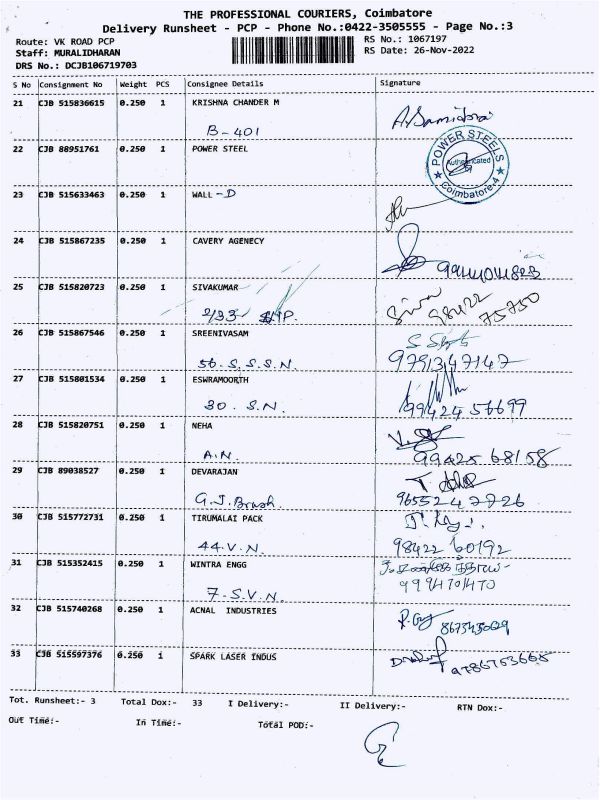 THE PROFESSIONAL COURIERS, Coimbatore
Delivery Runsheet - PCP - Phone No.:0422-3505555 - Page No.:3
Route: VK ROAD PCP
RS No.: 1067197
Staff: MURALIDHARAN
RS Date: 26-Nov-2022
DRS No.: DCJB106719703
S No Consignment No Weight PCS Consignee Details Signature
21 CJB 515836615 0.250 1 KRISHNA CHANDER M
B-401
22 CJB 88951761 0.250 1 POWER STEEL
POWER STEELS
Authenticated
Coimbatore-4
23 CJB 515633463 0.250 1 WALL-D
24 CJB 515867235 0.250 1 CAVERY AGENECY
25 CJB 515820723 0.250 1 SIVAKUMAR
Siva
98422
75750
26 CJB 515867546 0.250 1 SREENIVASAM
56. S.S.S.N.
9791347147
27 CJB 515801534 0.250 1 ESWRAMOORTH
30. S.N.
99424 56699
28 CJB 515820751 0.250 1 NEHA
A.N.
99425 68158
29 CJB 89038527 0.250 1 DEVARAJAN
G.J. Brush.
9655247726
30 CJB 515772731 0.250 1 TIRUMALAI PACK
44.V.N.
98422 60192
31 CJB 515352415 0.250 1 WINTRA ENGG
7-S.V.N.
9994701470
32 CJB 515740268 0.250 1 ACNAL INDUSTRIES
33 CJB 515597376 0.250 1 SPARK LASER INDUS
Tot. Runsheet:- 3 Total Dox:- 33 I Delivery:- II Delivery:- RTN Dox:-
Out Time:- In Time:- Total POD:-